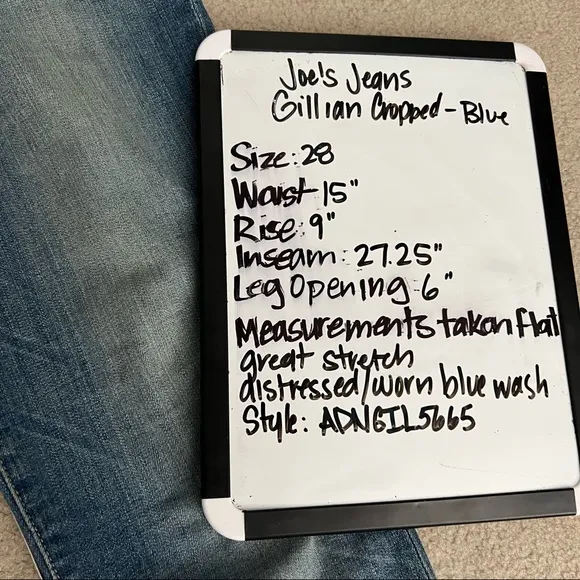 Joe's Jeans
Gillian Cropped - Blue
Size: 28
Waist 15"
Rise: 9"
Inseam: 27.25"
Leg Opening: 6"
Measurements taken flat
great stretch
distressed/worn blue wash
Style: ADNGIL5665